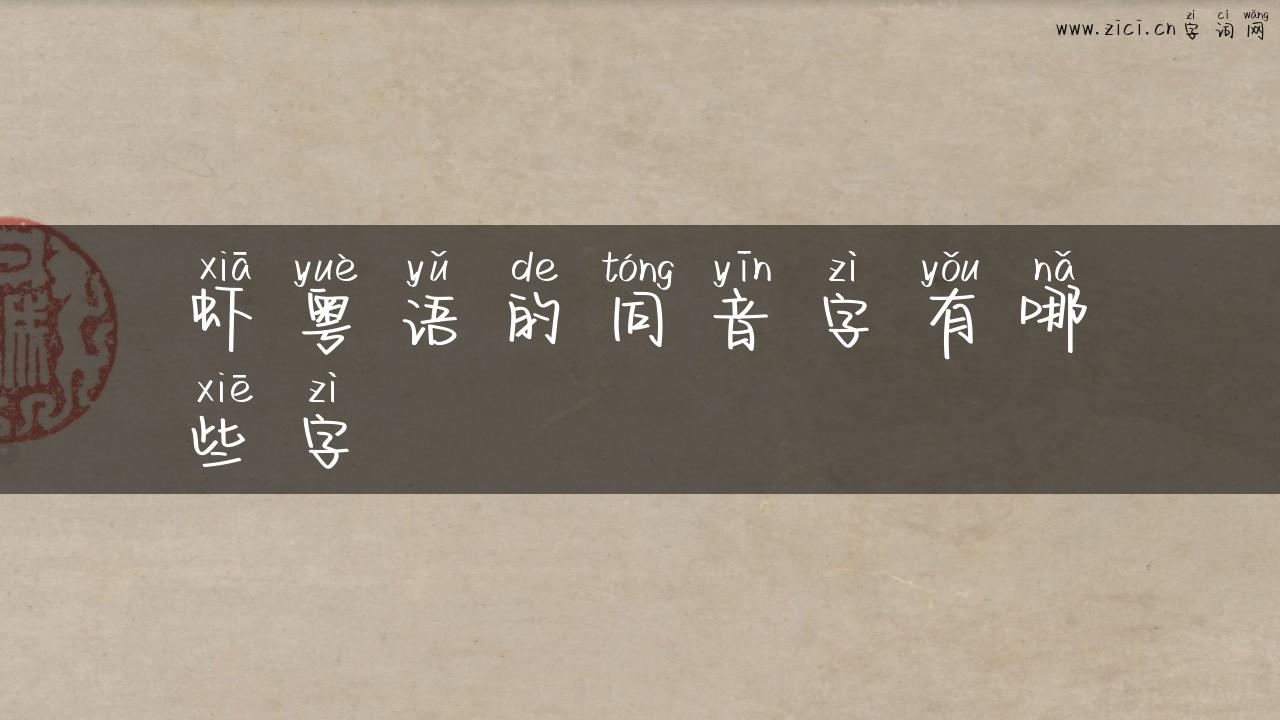 zì cí wǎng
www.zici.cn字词网
xiā yuè yǔ de tóng yīn zì yǒu nǎ
虾粤语的同音字有哪
xiē zì
些字